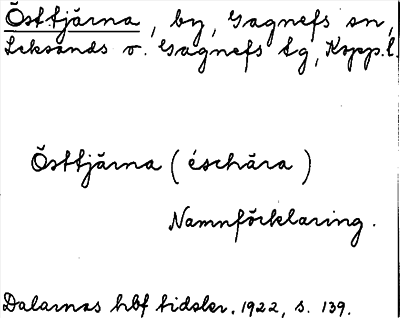 Östtjärna, by, Gagnefs sn,
Leksands o. Gagnefs tg, Kopp.l.
Östtjärna (éschära)
Namnförklaring.
Dalarnas hbf tidskr. 1922, s. 139.